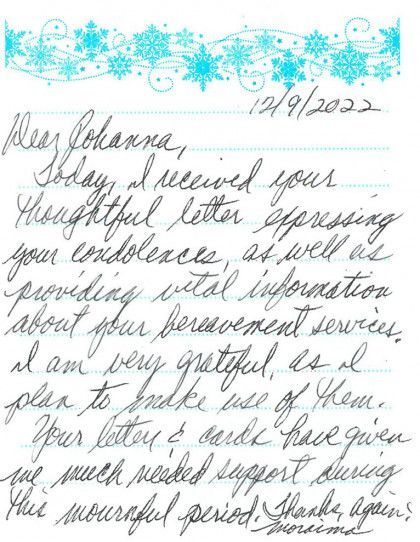 12/9/2022
Dear Johanna,
Today, I received your
thoughtful letter expressing
your condolences, as well as
providing vital information
about your bereavement services.
I am very grateful, as I
plan to make use of them.
Your letter & cards have given
me much needed support during
this mournful period. Thanks, again!
Moraima